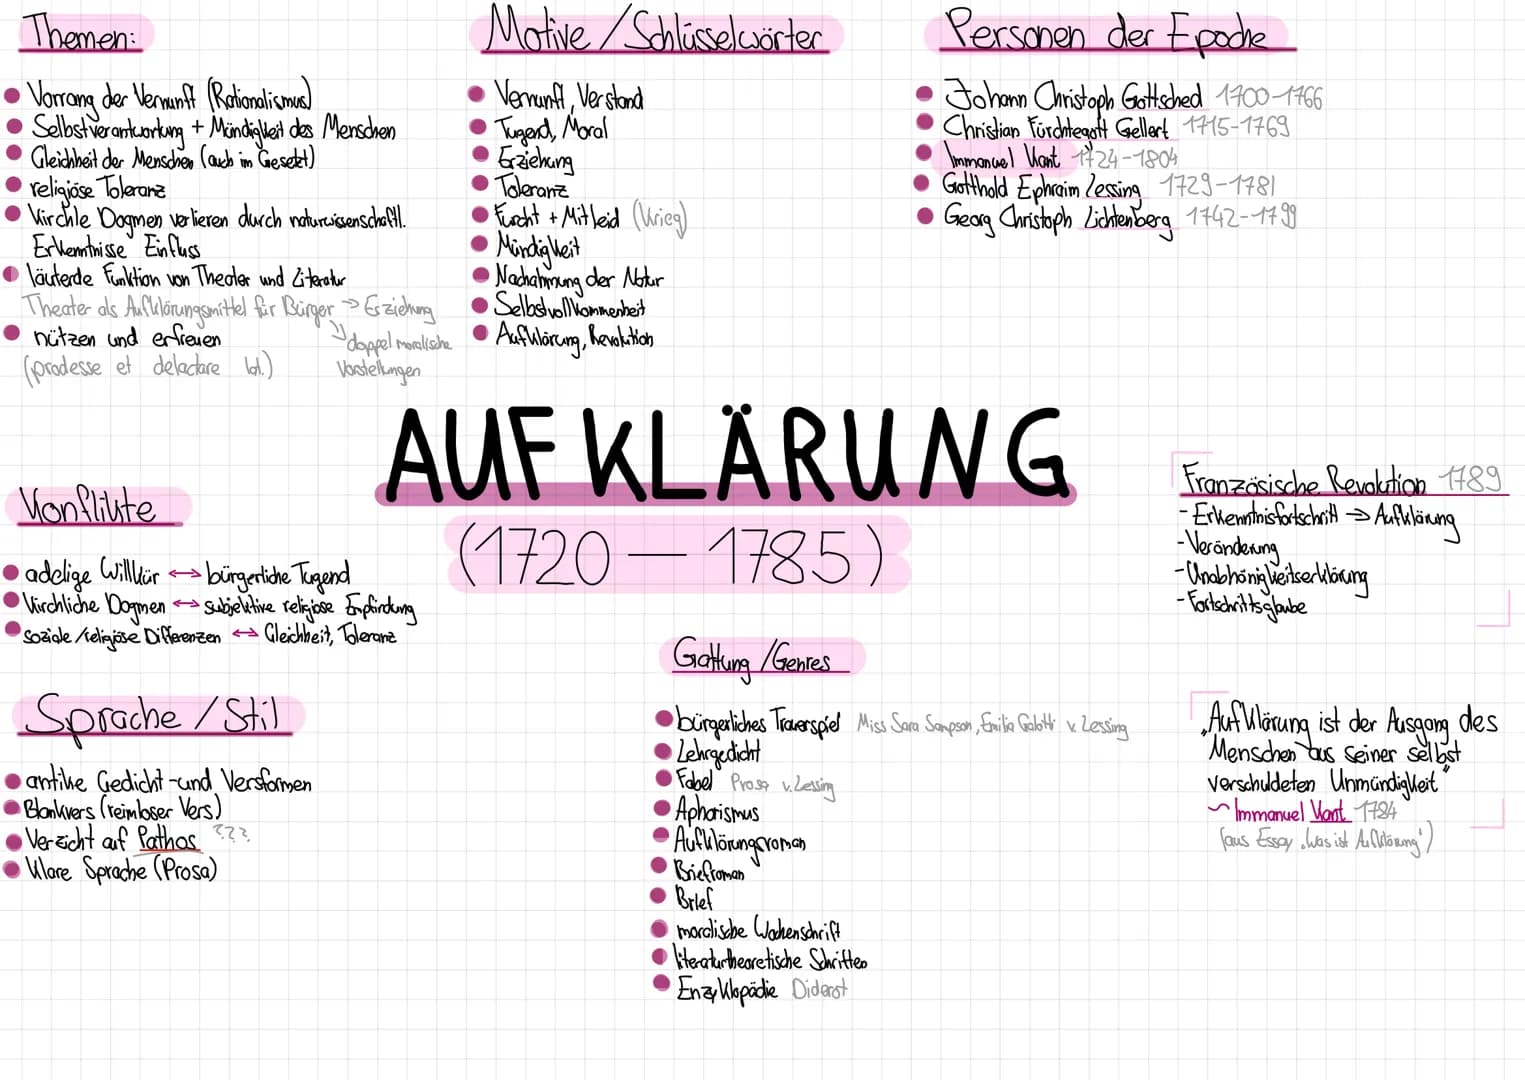 Themen:
Vorrang der Vernunft (Rationalismus)
Selbstverantwortung + Mündigkeit des Menschen
Gleichheit der Menschen (auch im Gesetz)
religiöse Toleranz
Kirchle Dogmen verlieren durch naturwissenschaftl.
Erkenntnisse Einfluss
läuterde Funktion von Theater und Literatur
Theater als Aufklärungsmittel für Bürger → Erziehung
doppelmoralische
Vorstellungen
nützen und erfreuen
(prodesse et delactare lat.)
Motive / Schlüsselwörter
Vernunft, Verstand
Tugend, Moral
Erziehung
Toleranz
Furcht + Mitleid (Krieg)
Mündigkeit
Nachahmung der Natur
Selbstvollkommenheit
Aufklärung, Revolution
Personen der Epoche
Johann Christoph Gottsched 1700-1766
Christian Fürchtegott Gellert 1715-1769
Immanuel Kant 1724-1804
Gotthold Ephraim Lessing 1729-1781
Georg Christoph Lichtenberg 1742-1799
AUFKLÄRUNG
(1720 — 1785)
Konflikte
adelige Willkür ↔ bürgerliche Tugend
Kirchliche Dogmen ↔ subjektive religiöse Empfindung
soziale/religiöse Differenzen ↔ Gleichheit, Toleranz
Französische Revolution 1789
- Erkenntnisfortschritt → Aufklärung
- Veränderung
- Unabhängigkeitserklärung
- Fortschrittsglaube
Sprache / Stil
antike Gedicht- und Versformen
Blankvers (reimloser Vers)
Verzicht auf Pathos ???
klare Sprache (Prosa)
Gattung / Genres
bürgerliches Trauerspiel Miss Sara Sampson, Emilia Galotti v. Lessing
Lehrgedicht
Fabel Prosa v. Lessing
Aphorismus
Aufklärungsroman
Briefroman
Brief
moralische Wochenschrift
literaturtheoretische Schriften
Enzyklopädie Diderot
„Aufklärung ist der Ausgang des
Menschen aus seiner selbst
verschuldeten Unmündigkeit"
~ Immanuel Kant 1784
(aus Essay „Was ist Aufklärung")